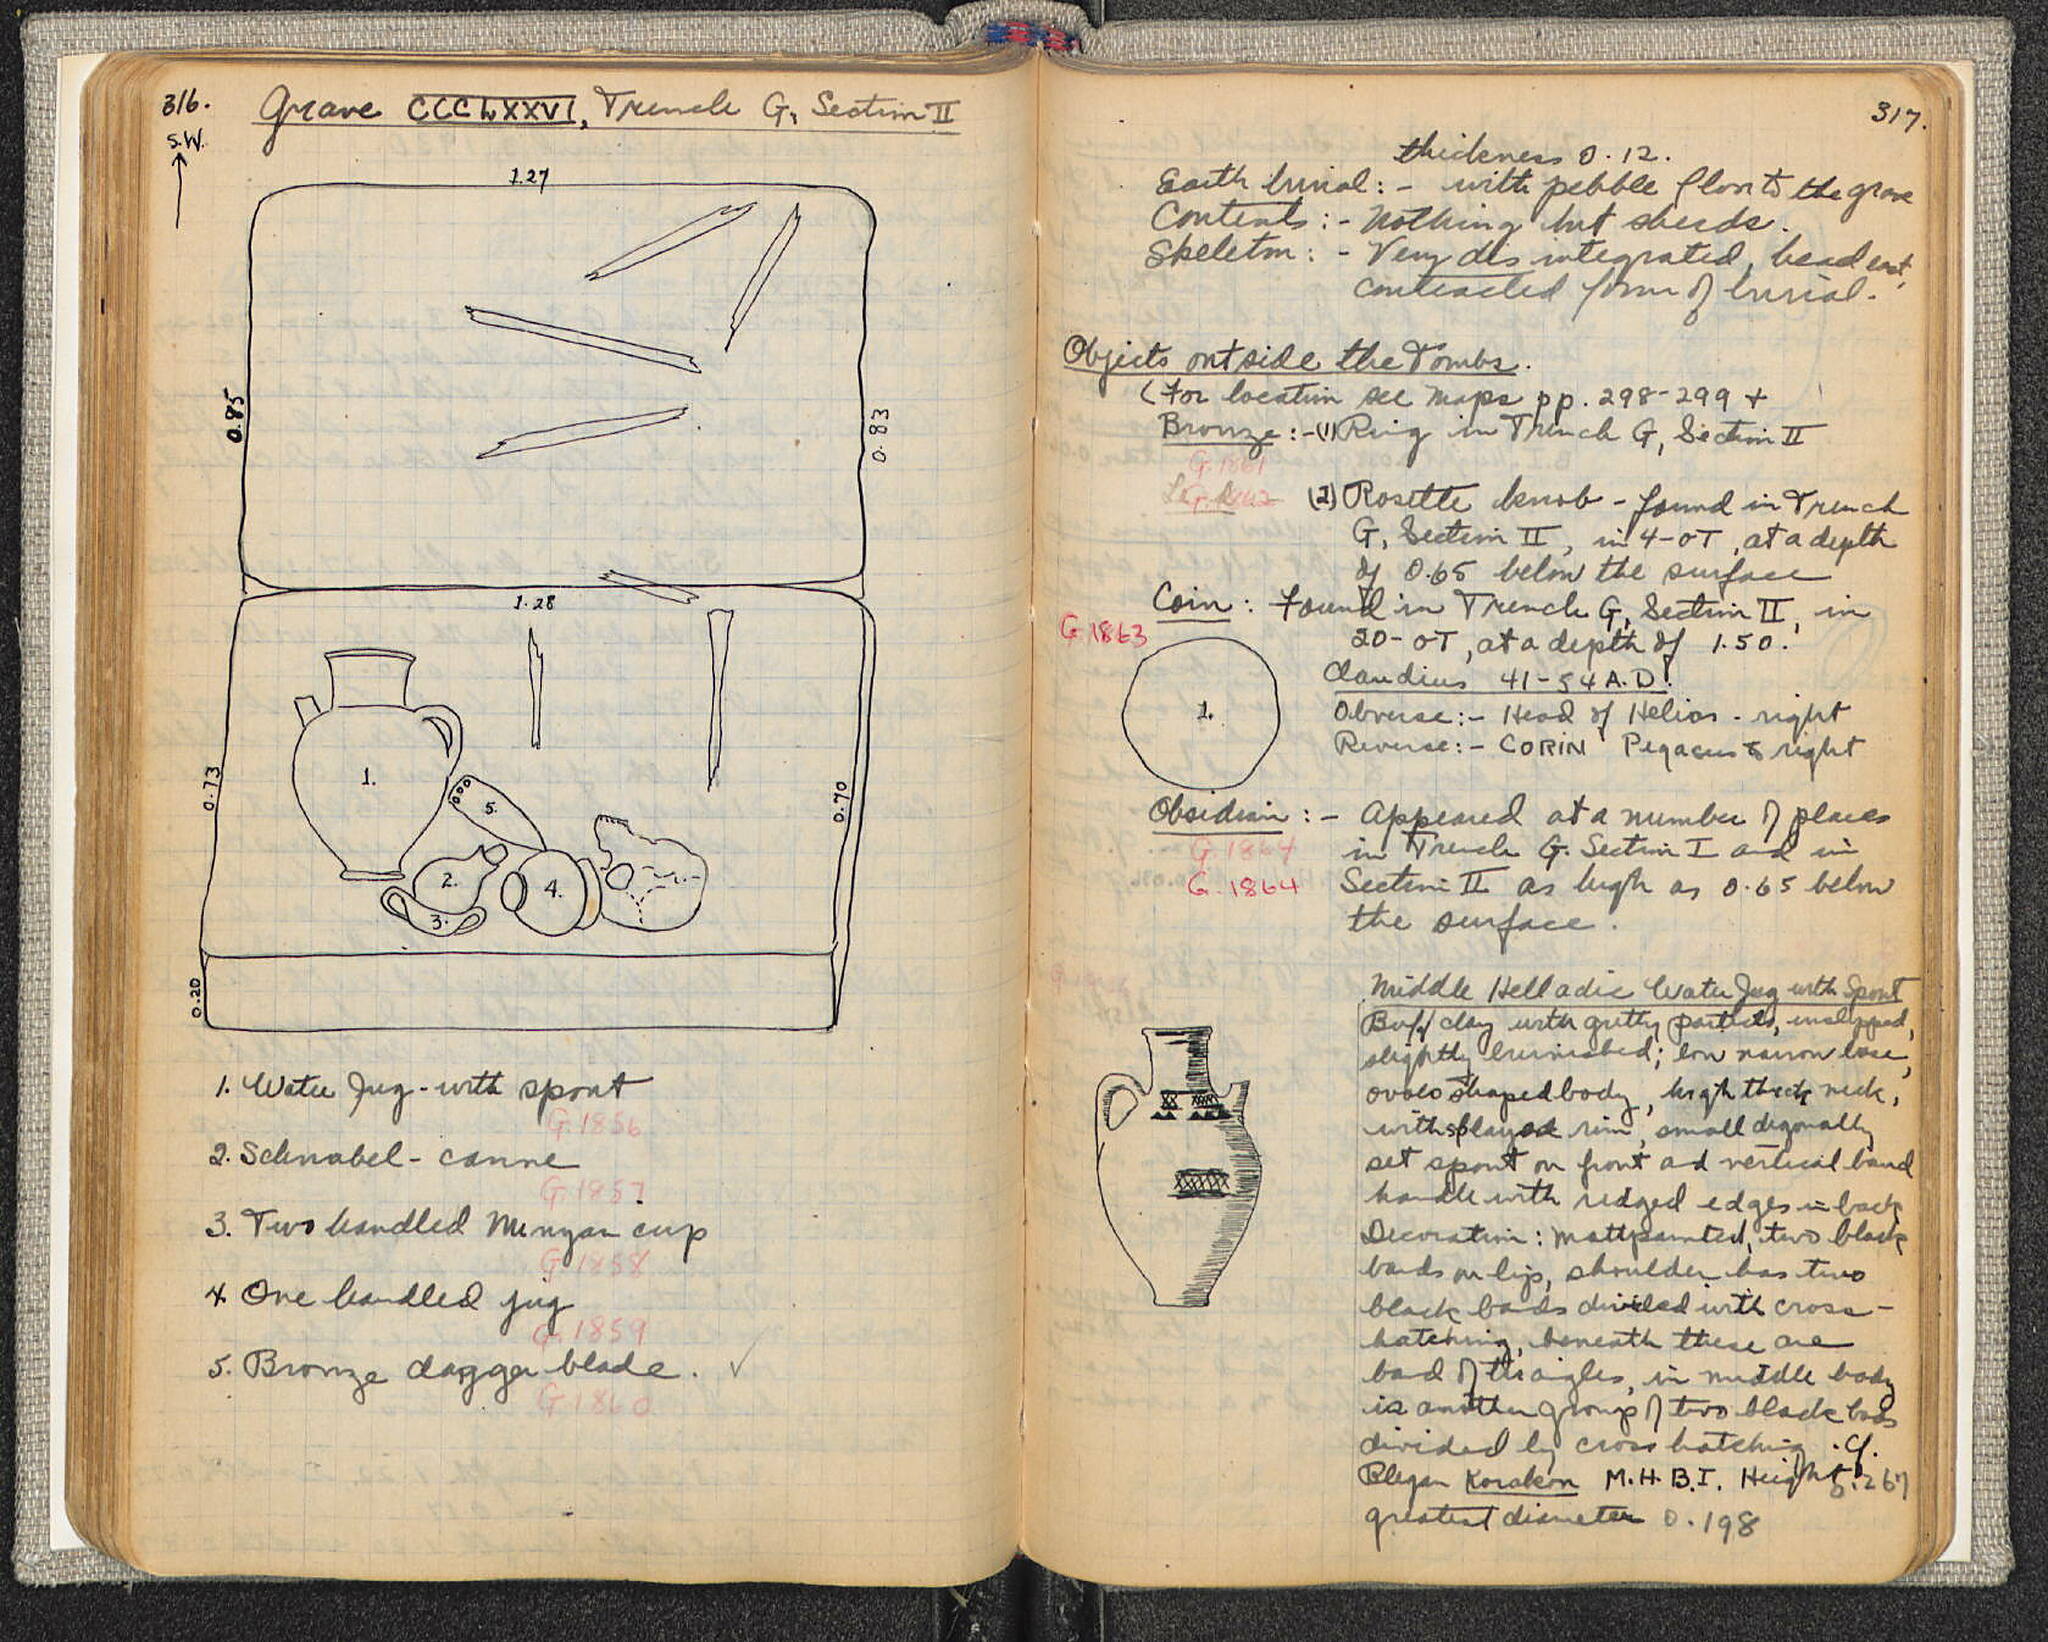 316.
Grave CCCLXXVI, Trench G, Section II
S.W.
1.27
0.85
0.83
1.28
0.73
0.70
1.
5.
2.
3.
4.
0.20
1. Water Jug - with spout
G.1856
2. Schnabel - canne
G.1857
3. Two handled Minyan cup
G.1858
4. One handled jug
G.1859
5. Bronze dagger blade. ✓
G.1860
317.
thickness 0.12.
Earth burial: - with pebble floor to the grave
Contents: - Nothing but sherds.
Skeleton: - Very disintegrated, head east,
contracted form of burial.
Objects outside the Tombs.
(For location see maps pp. 298-299 +
Bronze: - (1) Ring in Trench G, Section II
G.1861
G.1862 (2) Rosette knob - found in Trench
G, Section II, in 4-OT, at a depth
of 0.65 below the surface
Coin: Found in Trench G, Section II, in
G.1863
20-OT, at a depth of 1.50.
Claudius 41-54 A.D.
1.
Obverse: - Head of Helios - right
Reverse: - CORIN Pegasus to right
Obsidian: - Appeared at a number of places
G.1864 in Trench G. Section I and in
G.1864 Section II as high as 0.65 below
the surface.
Middle Helladic Water Jug with Spout
Buff clay with gritty particles, unslipped,
slightly burnished; low narrow base,
ovoid shaped body, high thick neck,
with splayed rim, small diagonally
set spout on front and vertical band
handle with ridged edges in back
Decoration: mattpainted, two black
bands on lip, shoulder has two
black bands divided with cross-
hatching, beneath these are
band of triangles, in middle body
is another group of two black bands
divided by cross hatching. cf.
Blegen Korakou M.H.B.I. Height 0.267
greatest diameter 0.198